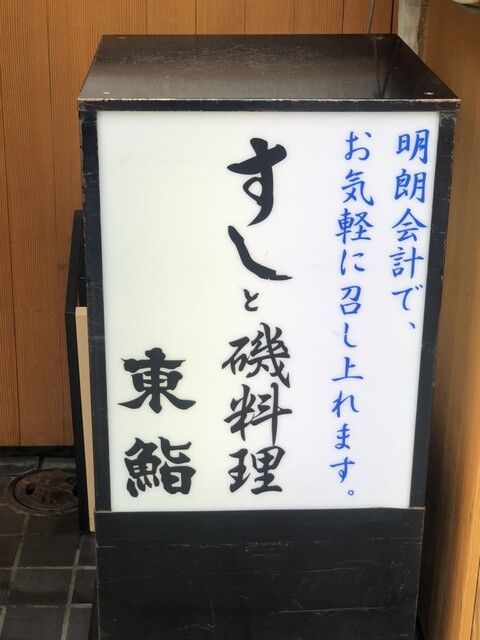 明朗会計で、
お気軽に召し上れます。
すしと磯料理
東鮨